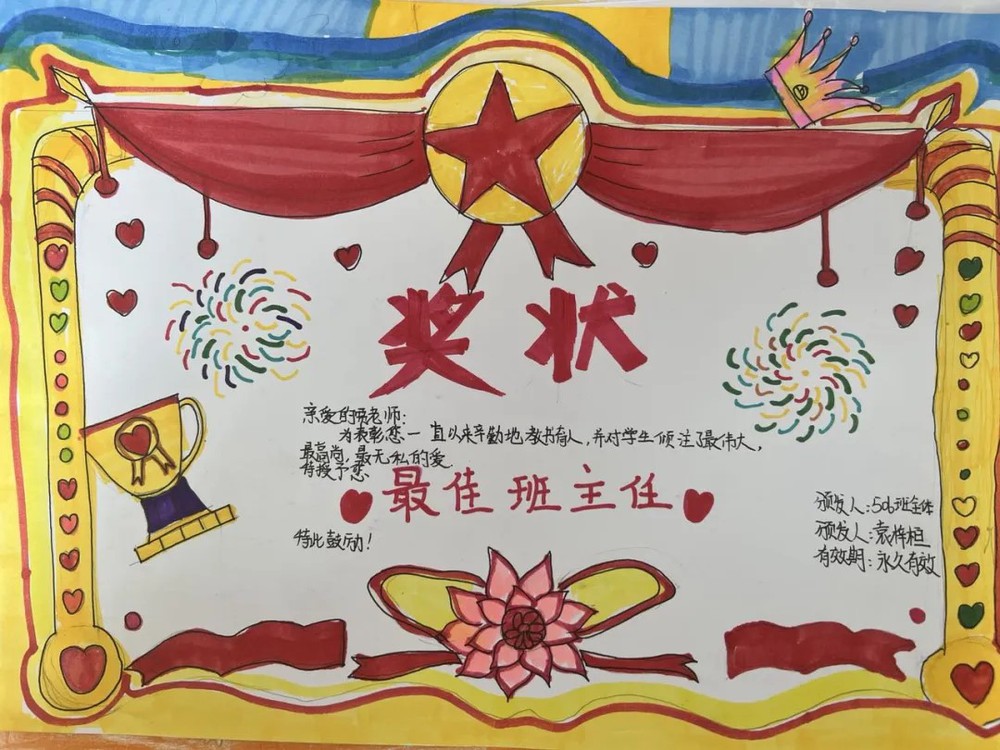 奖状
亲爱的 老师：
为表彰您一直以来辛勤地教书育人，并对学生倾注了最伟大，
最高尚，最无私的爱
特授予您
最佳班主任
特此鼓励！
颁发人：506班全体
颁发人：袁梓桓
有效期：永久有效